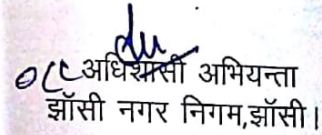 अधिशासी अभियन्ता
झाँसी नगर निगम,झाँसी।